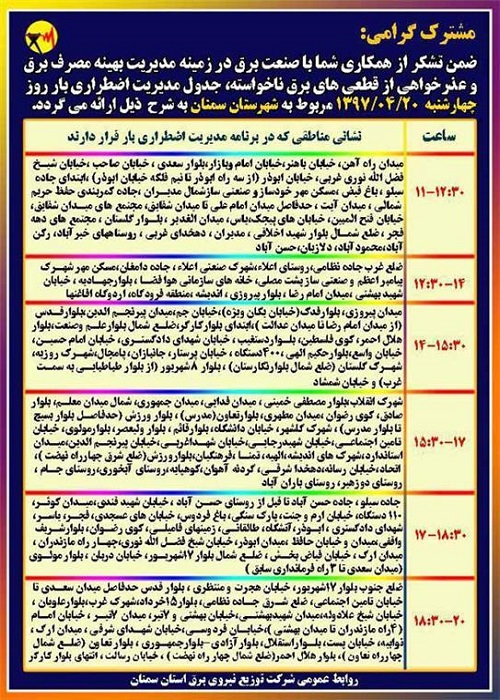 مشترک گرامی:
ضمن تشکر از همکاری شما با صنعت برق در زمینه مدیریت بهینه مصرف برق
و عذرخواهی از قطعی های برق ناخواسته، جدول مدیریت اضطراری بار روز
چهارشنبه ۱۳۹۷/۰۴/۲۰ مربوط به شهرستان سمنان به شرح ذیل ارائه می گردد.
ساعت
نشانی مناطقی که در برنامه مدیریت اضطراری بار قرار دارند
۱۱-۱۲:۳۰
میدان راه آهن، خیابان باهنر،خیابان امام وبازار،بلوار سعدی ، خیابان صاحب ،خیابان شیخ
فضل الله نوری غربی، خیابان ابوذر (از سه راه ابوذر تا نیم فلکه خیابان ابوذر) ،ابتدای جاده
سیلو ، باغ فیض ،مسکن مهر خودساز و صنعتی سازشمال مدیران ،جاده کمربندی حفظ حریم
شمالی ، میدان آیت ، حدفاصل میدان امام علی تا میدان شقایق، مجتمع های میدان شقایق،
خیابان فتح المبین، خیابان های پیچک،یاس، میدان الغدیر ، بلوار گلستان ، مجتمع های دهه
فجر ، ضلع شمال بلوار شهید اخلاقی ، مدیران ، دهخدای غربی ، روستاههای خیر آباد، رکن
آباد،محمود آباد، دلازیان،حسن آباد
۱۲:۳۰-۱۴
ضلع غرب جاده نظامی،روستای اعلاء،شهرک صنعتی اعلاء ، جاده دامغان،مسکن مهر شهرک
پیامبر اعظم و صنعتی سازپشت مصلی، خانه های سازمانی هوا فضا ، بلوارجهادیه ، خیابان
شهید بهشتی ،میدان امام رضا ، بلوار پیروزی ، اندیشه ،منطقه فرودگاه، اردوگاه افاغنها
۱۴-۱۵:۳۰
میدان پیروزی، بلوارفدک(خیابان بکان ویژه)، خیابان جم،میدان پیرنجم الدین،بلوارقدس
(از میدان امام رضا تا میدان عدالت )،ابتدای بلوارکارگر،ضلع شمال بلوارعلم وصنعت،بلوار
هلال احمر، کوی فلسطین، بلواردستغیب ، خیابان شهدای دادگستری ، خیابان امام حسین،
خیابان واسع،بلوارحکیم الهی،۴۰۰دستگاه ، خیابان پرستار، جانبازان ،بامچال،شهرک روزیه،
شهرک گلستان (ضلع شمال بلوارنگارستان) ، بلوار ۸شهریور (از بلوار طباطبایی به سمت
غرب) و خیابان شمشاد
۱۵:۳۰-۱۷
شهرک انقلاب،بلوارمصطفی خمینی ، میدان فدایی،میدان جمهوری، شمال میدان معلم،بلوار
صادق، کوی رضوان ،میدان مطهری، بلوارتعاون(مدرس) ، بلوار ورزش (حدفاصل بلوار بسیج
تا بلوار مدرس) ، شهرک گلشهر، خیابان دانشگاه، بلوارقائم ، بلوار ولیعصر،بلوارمولوی، خیابان
تامین اجتماعی، خیابان شهیدرجایی،خیابان شهداغربی،خیابان پیرنجم الدین،میدان
استاندارد،شهرک های اندیشه،الهیه، تمنا ،فرهنگیان،بلوارورزش(ضلع شرق چهارراه نهضت )،
اتحاد،خیابان رسانه،دهخدا شرقی، گردنه آهوان،کوهپایه،روستای آبخوری،روستای جام ،
روستای دوزهیر ،روستای باران آباد
۱۷-۱۸:۳۰
جاده سیلو ، جاده حسن آباد تا قبل از روستای حسن آباد ، خیابان شهید قندی،میدان کوثر،
۱۱۰ دستگاه، خیابان ارم و جنت، پارک سنگی، باغ فردوس، خیابان های عسجدی، فجر، یاسر،
شهدای دادگستری ، ابوذر، آتشگاه، طالقانی، زمینهای فامیلی، کوی رضوان، بلوارشریف
واقفی،میدان و خیابان حافظ ،میدان ابوذر، خیابان شیخ فضل الله نوری،چهار راه مازندران ،
میدان ارک ، خیابان فیاض بخش ، ضلع شمال بلوار ۱۷شهریور، خیابان دربان ، بلوار مولوی
(میدان سعدی تا ۳ راه فرمانداری سابق )
۱۸:۳۰-۲۰
ضلع جنوب بلوار ۱۷شهریور، خیابان هجرت و منتظری ، بلوار قدس حدفاصل میدان سعدی تا
خیابان تامین اجتماعی، ضلع شرق جاده نظامی، بلوار۱۵خرداد،شهرک غرب،بلوارعلویان ،
خیابان شیخ علاءدوله،میدان شهیدبهشتی،خیابان بهشتی و ۷تیر، میدان ۷تیر ، خیابان امام
(۴راه مازندران تا میدان بهشتی )،خیابان فردوسی،خیابان شهدای شرقی ، میدان ارک ،
توابیه، خیابان پست، بلواراستقلال، بلوار آزادی -بلوارجمهوری ، بلوار تعاون (ضلع شمال
چهارراه تعاون)، بلوار هلال احمر(ضلع شمال چهار راه نهضت )، خیابان رسالت ،انتهای بلوار کارگر
روابط عمومی شرکت توزیع نیروی برق استان سمنان